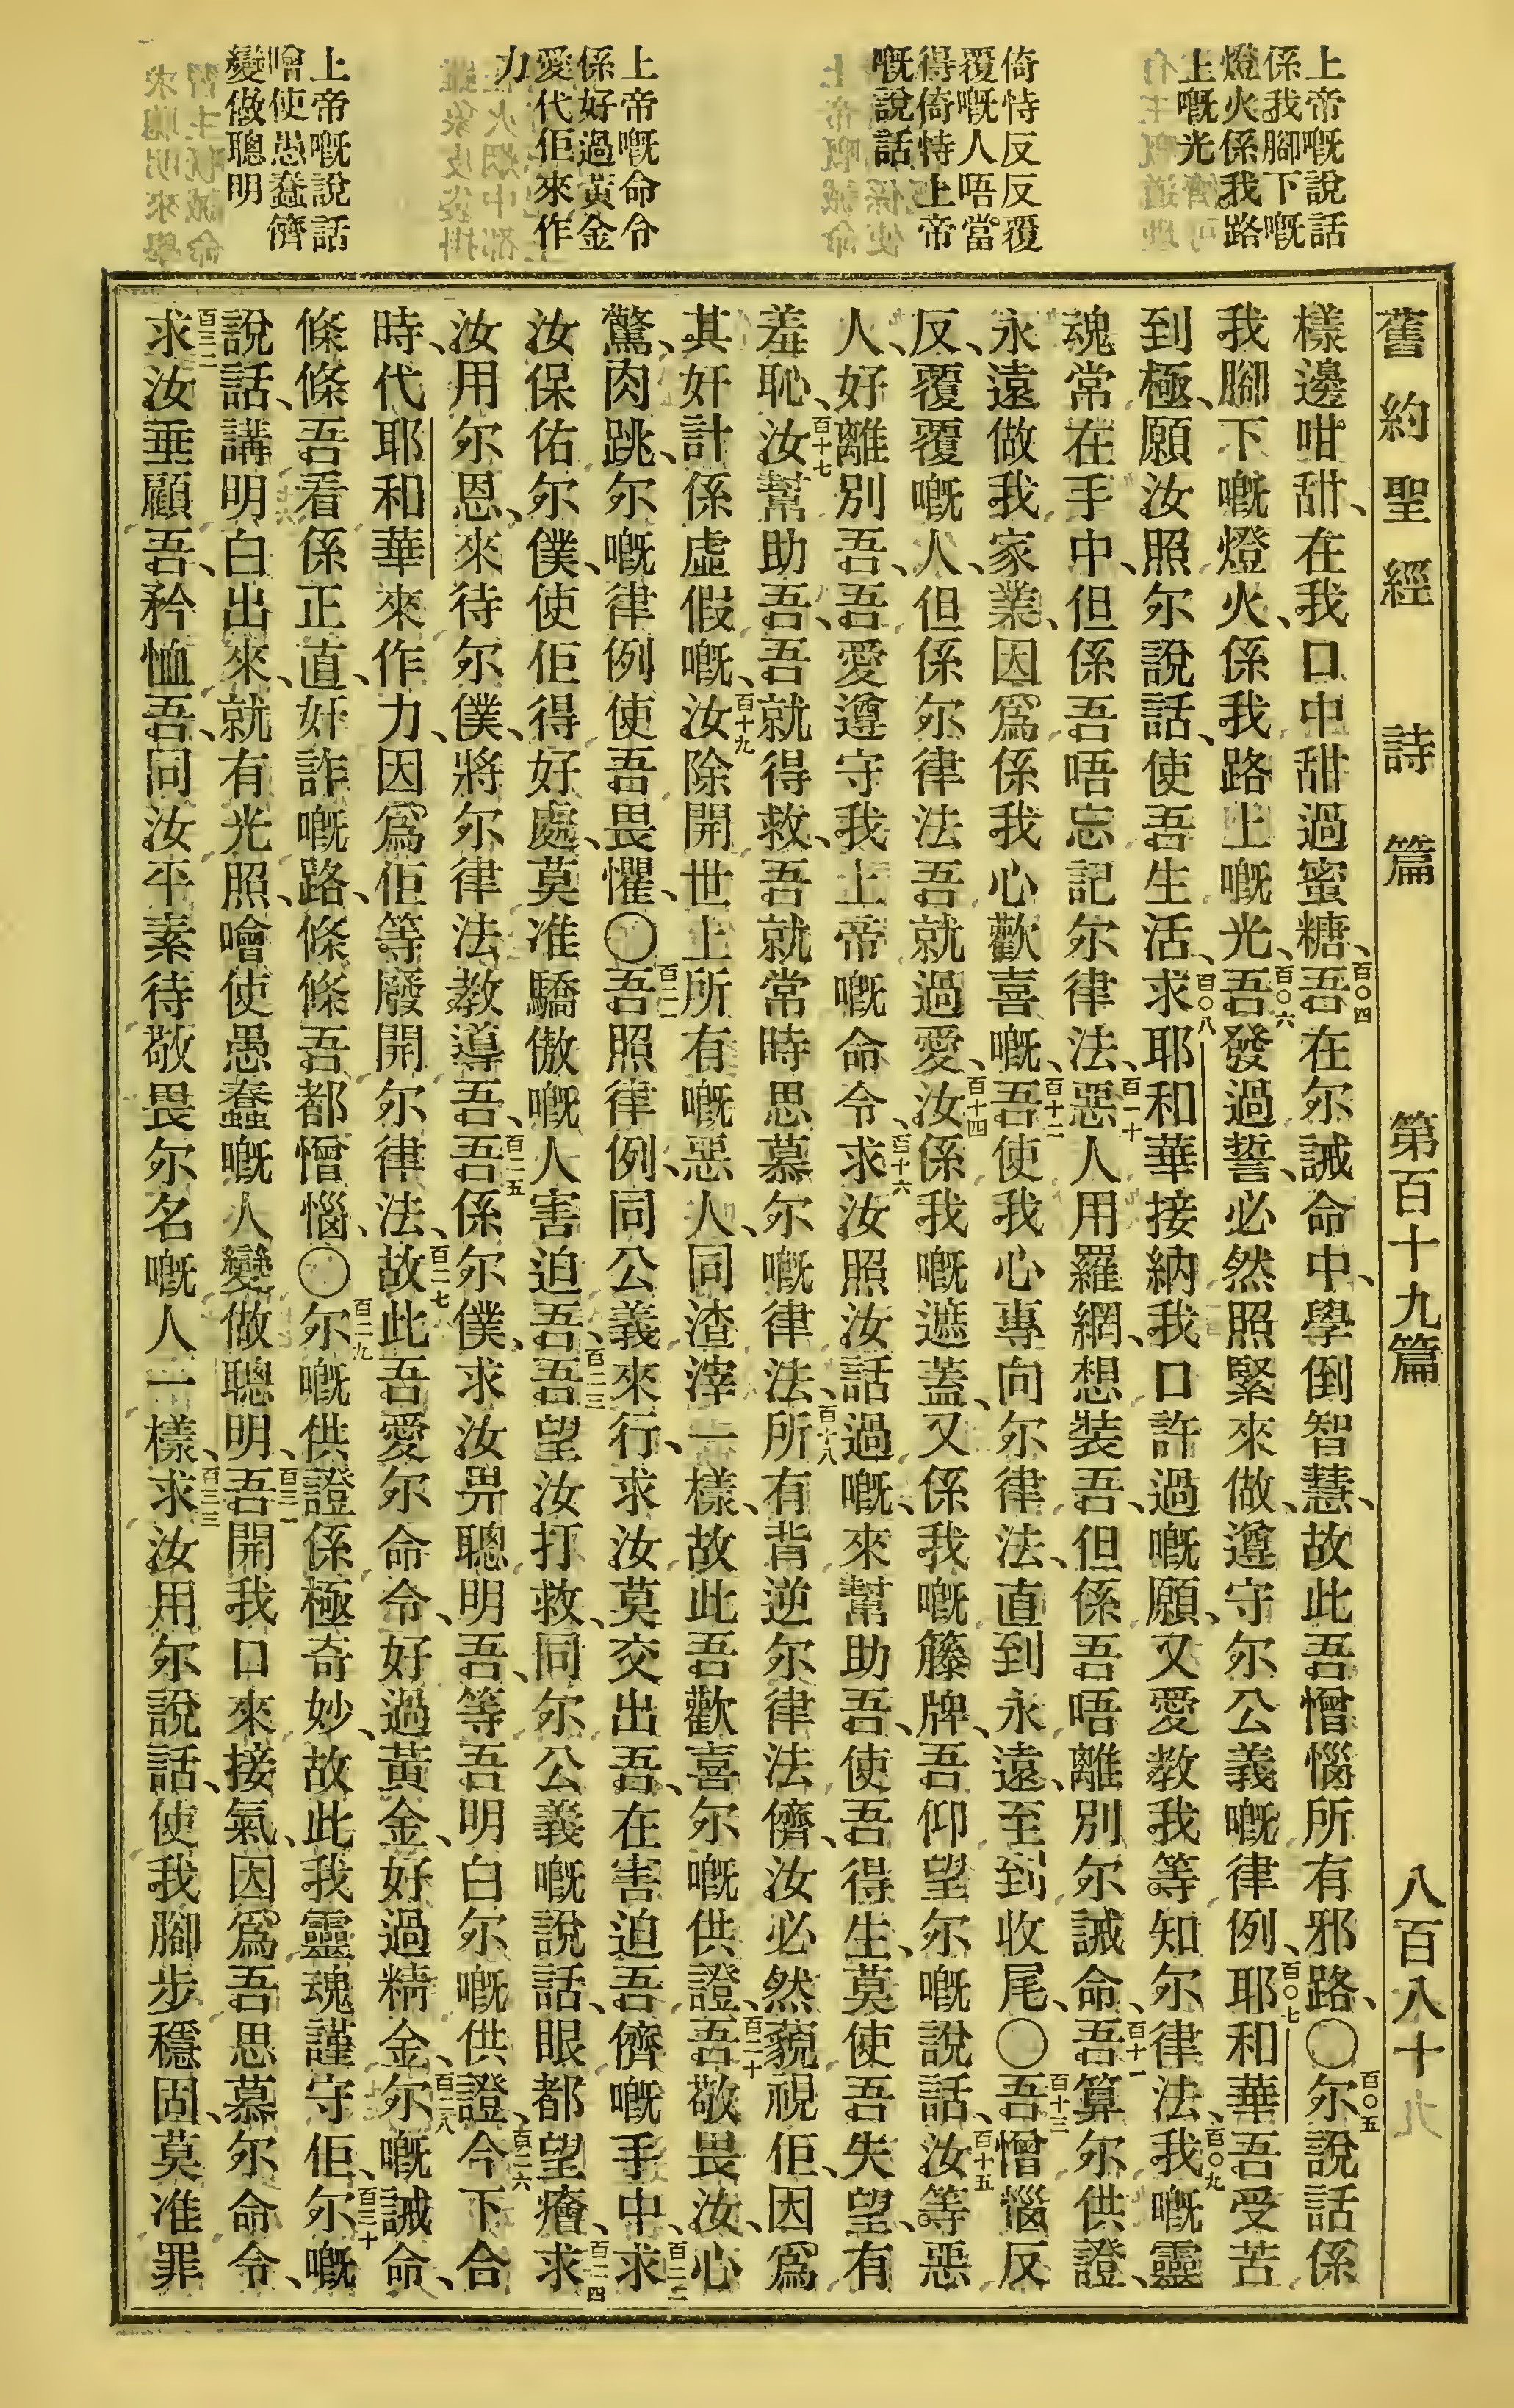 上帝嘅說話
係我腳下嘅
燈火係我路
上嘅光
倚恃反反覆
覆嘅人唔當
得倚恃上帝
嘅說話
上帝嘅命令
係好過黃金
愛代佢來作
力
上帝嘅說話
噲使愚蠢儕
變做聰明
舊約聖經 詩篇 第百十九篇 八百八十九
樣邊咁甜、在我口中甜過蜜糖、百〇四吾在尔誡命中、學倒智慧、故此吾憎惱所有邪路、〇百〇五尔說話係
我腳下嘅燈火、係我路上嘅光、百〇六吾發過誓、必然照緊來做、遵守尔公義嘅律例、百〇七耶和華吾受苦
到極、願汝照尔說話、使吾生活、百〇八求耶和華接納我口許過嘅願、又愛教我等知尔律法、百〇九我嘅靈
魂常在手中、但係吾唔忘記尔律法、百一十惡人用羅網、想裝吾、但係吾唔離別尔誡命、百十一吾算尔供證、
永遠做我家業、因爲係我心歡喜嘅、百十二吾使我心專向尔律法、直到永遠、至到收尾、〇百十三吾憎惱反
反覆覆嘅人、但係尔律法吾就過愛、百十四汝係我嘅遮蓋、又係我嘅籐牌、吾仰望尔嘅說話、百十五汝等惡
人、好離別吾、吾愛遵守我上帝嘅命令、百十六求汝照汝話過嘅、來幫助吾、使吾得生、莫使吾失望、有
羞恥、百十七汝幫助吾、吾就得救、吾就常時思慕尔嘅律法、百十八所有背逆尔律法儕、汝必然藐視佢、因爲
其奸計係虛假嘅、百十九汝除開世上所有嘅惡人、同渣滓一樣、故此吾歡喜尔嘅供證、百二十吾敬畏汝、心
驚肉跳、尔嘅律例使吾畏懼、〇百二一吾照律例、同公義來行、求汝莫交出吾、在害迫吾儕嘅手中、百二二求
汝保佑尔僕、使佢得好處、莫准驕傲嘅人害迫吾、百二三吾望汝打救、同尔公義嘅說話、眼都望癐、百二四求
汝用尔恩、來待尔僕、將尔律法教導吾、百二五吾係尔僕、求汝畀聰明吾、等吾明白尔嘅供證、百二六今下合
時代耶和華來作力、因爲佢等廢開尔律法、百二七故此吾愛尔命令、好過黃金、好過精金、百二八尔嘅誡命、
條條吾看係正直、奸詐嘅路、條條吾都憎惱、〇百二九尔嘅供證係極奇妙、故此我靈魂謹守佢、百三十尔嘅
說話、講明白出來、就有光照、噲使愚蠢嘅人變做聰明、百三一吾開我口來接氣、因爲吾思慕尔命令、
百三二求汝垂顧吾、矜恤吾、同汝平素待敬畏尔名嘅人一樣、百三三求汝用尔說話、使我腳步穩固、莫准罪